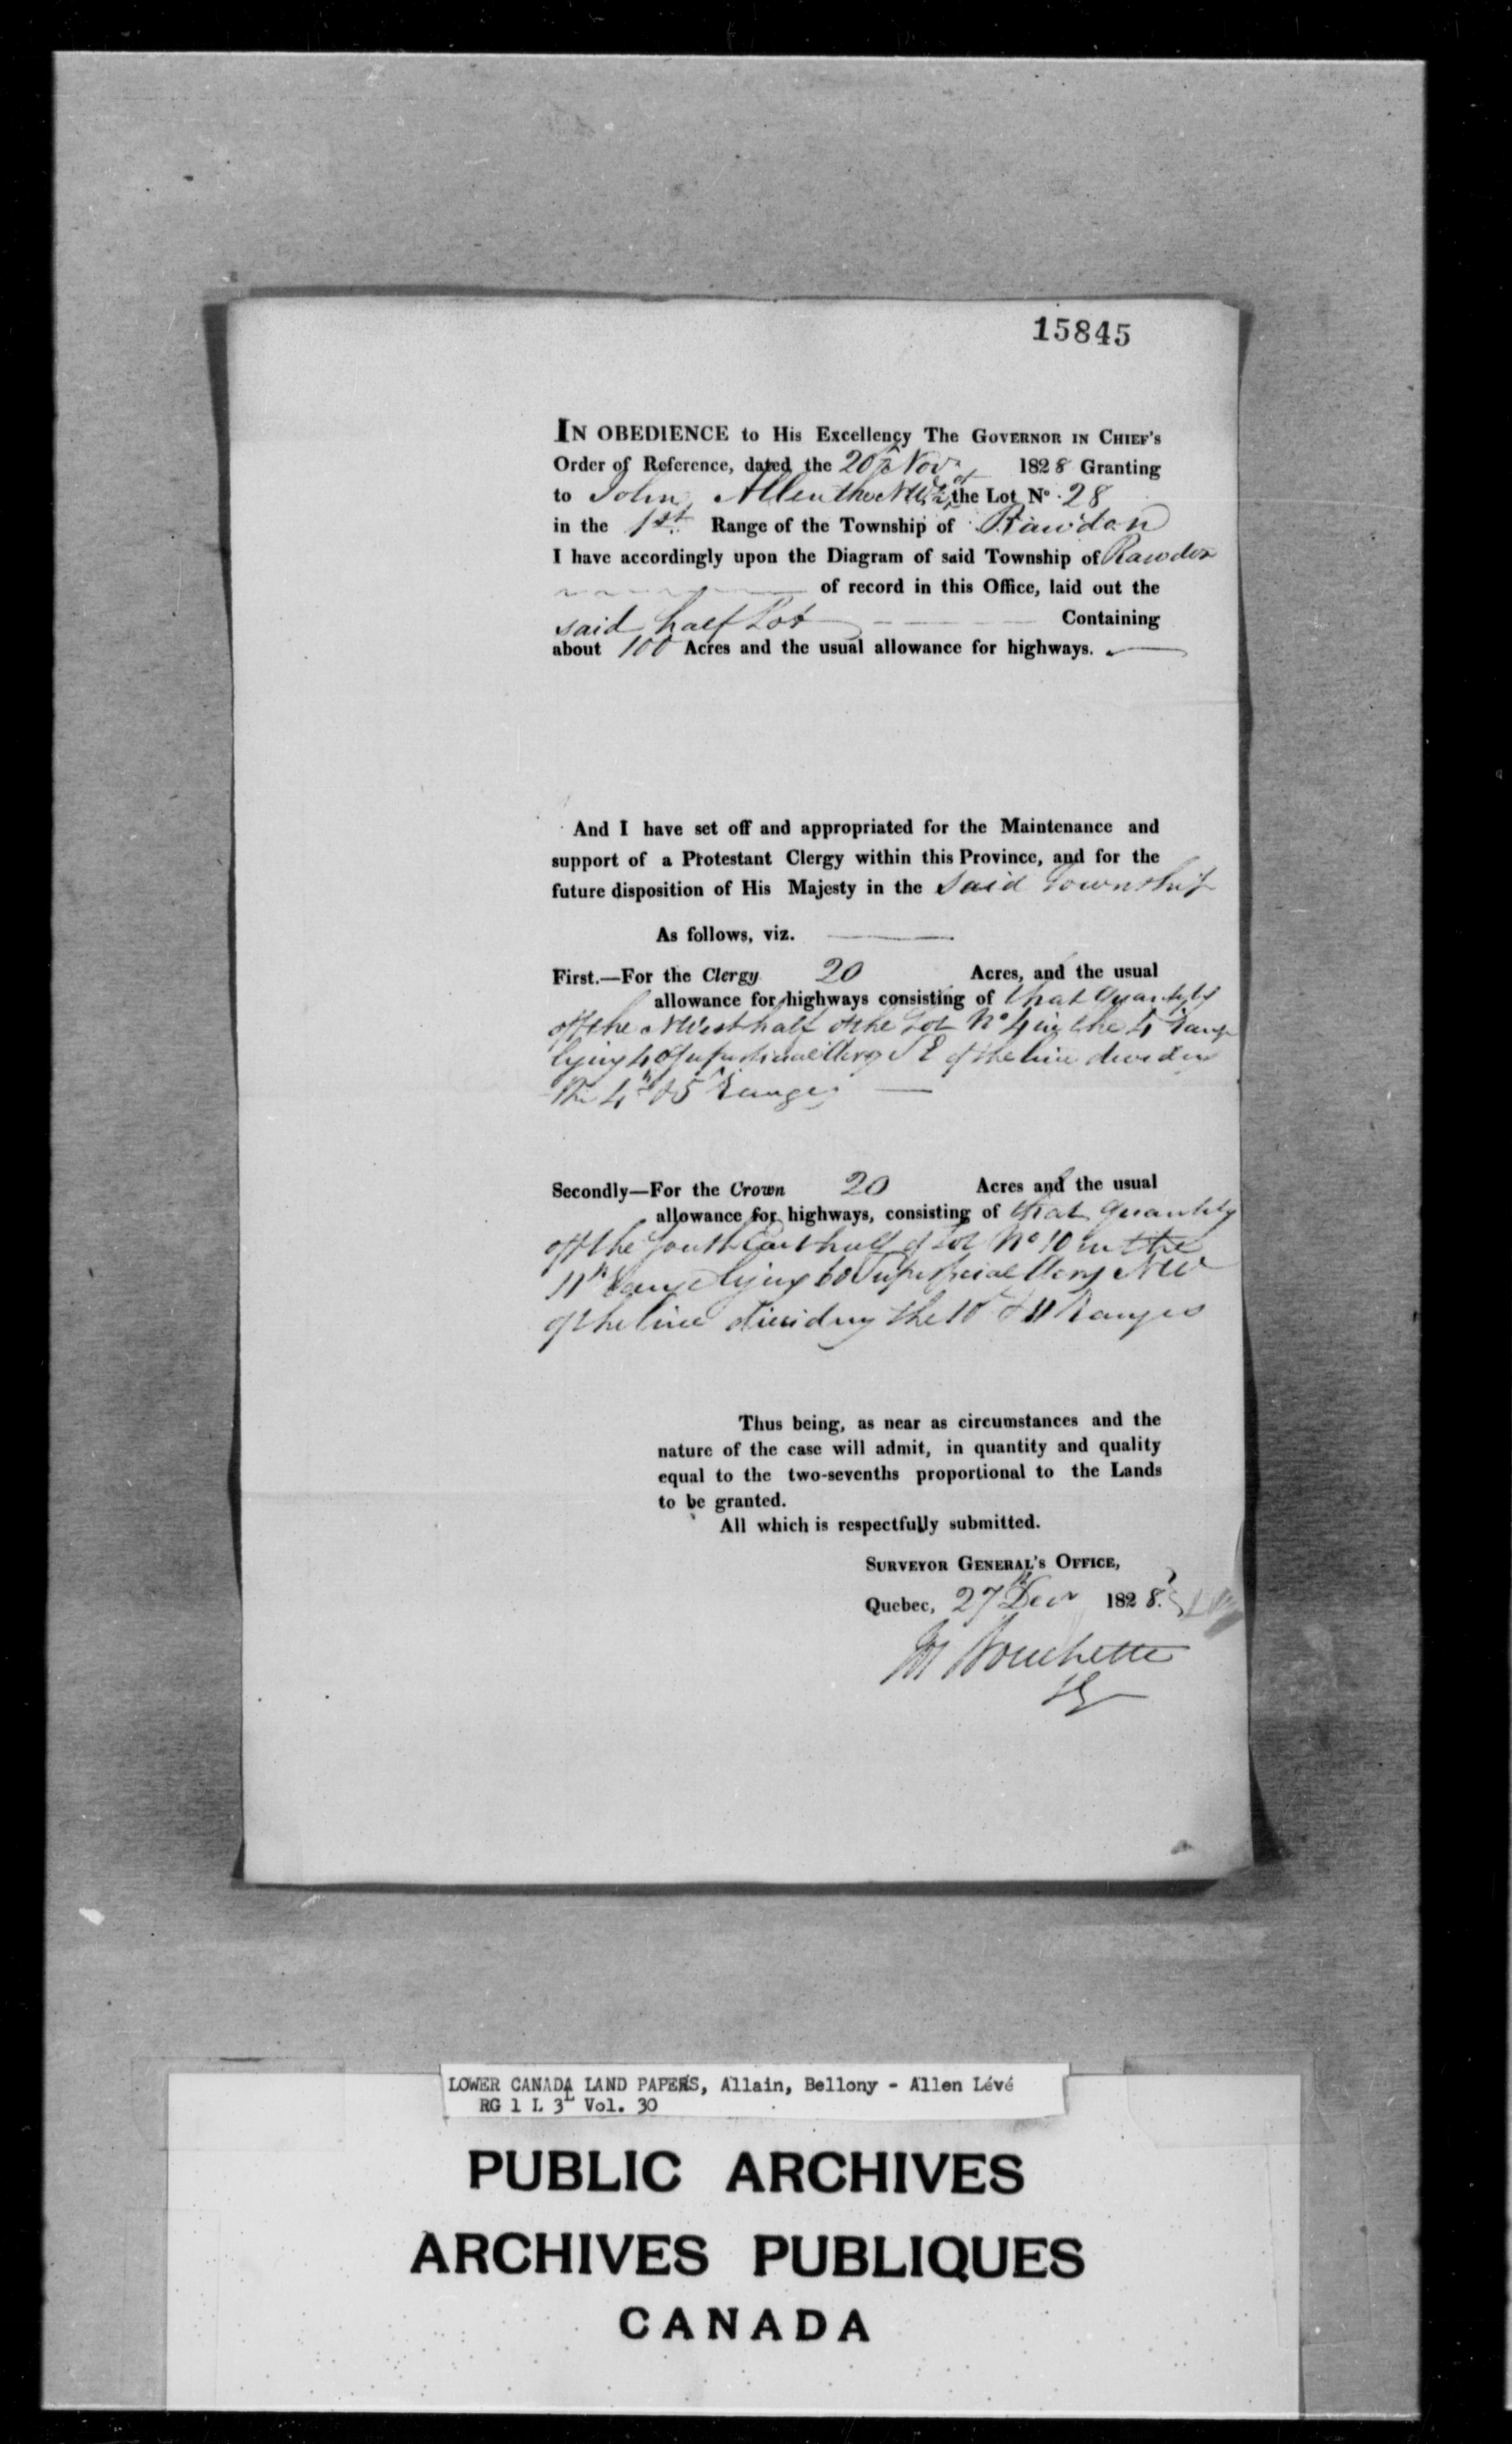 15845
IN OBEDIENCE to His Excellency The GOVERNOR IN CHIEF'S
Order of Reference, dated the 20th Novr 1828 Granting
to John Allen the NW ½ of the Lot No. 28
in the 1st Range of the Township of Rawdon
I have accordingly upon the Diagram of said Township of Rawdon
of record in this Office, laid out the
said half Lot Containing
about 100 Acres and the usual allowance for highways.
And I have set off and appropriated for the Maintenance and
support of a Protestant Clergy within this Province, and for the
future disposition of His Majesty in the Said Township
As follows, viz.
First.—For the Clergy 20 Acres, and the usual
allowance for highways consisting of that Quantity
off the NWest half of the Lot No 4 in the 4 Range
lying 40 Superficial SE of the line dividing
the 4th & 5th Ranges
Secondly—For the Crown 20 Acres and the usual
allowance for highways, consisting of that quantity
off the South East half of Lot No 10 in the
11th Range lying 60 Superficial NW
of the line dividing the 10 & 11 Ranges
Thus being, as near as circumstances and the
nature of the case will admit, in quantity and quality
equal to the two-sevenths proportional to the Lands
to be granted.
All which is respectfully submitted.
SURVEYOR GENERAL'S OFFICE,
Quebec, 27th Decr 1828.
Bouchette
LOWER CANADA LAND PAPERS, Allain, Bellony - Allen Lévé
RG 1 L 3L Vol. 30
PUBLIC ARCHIVES
ARCHIVES PUBLIQUES
CANADA